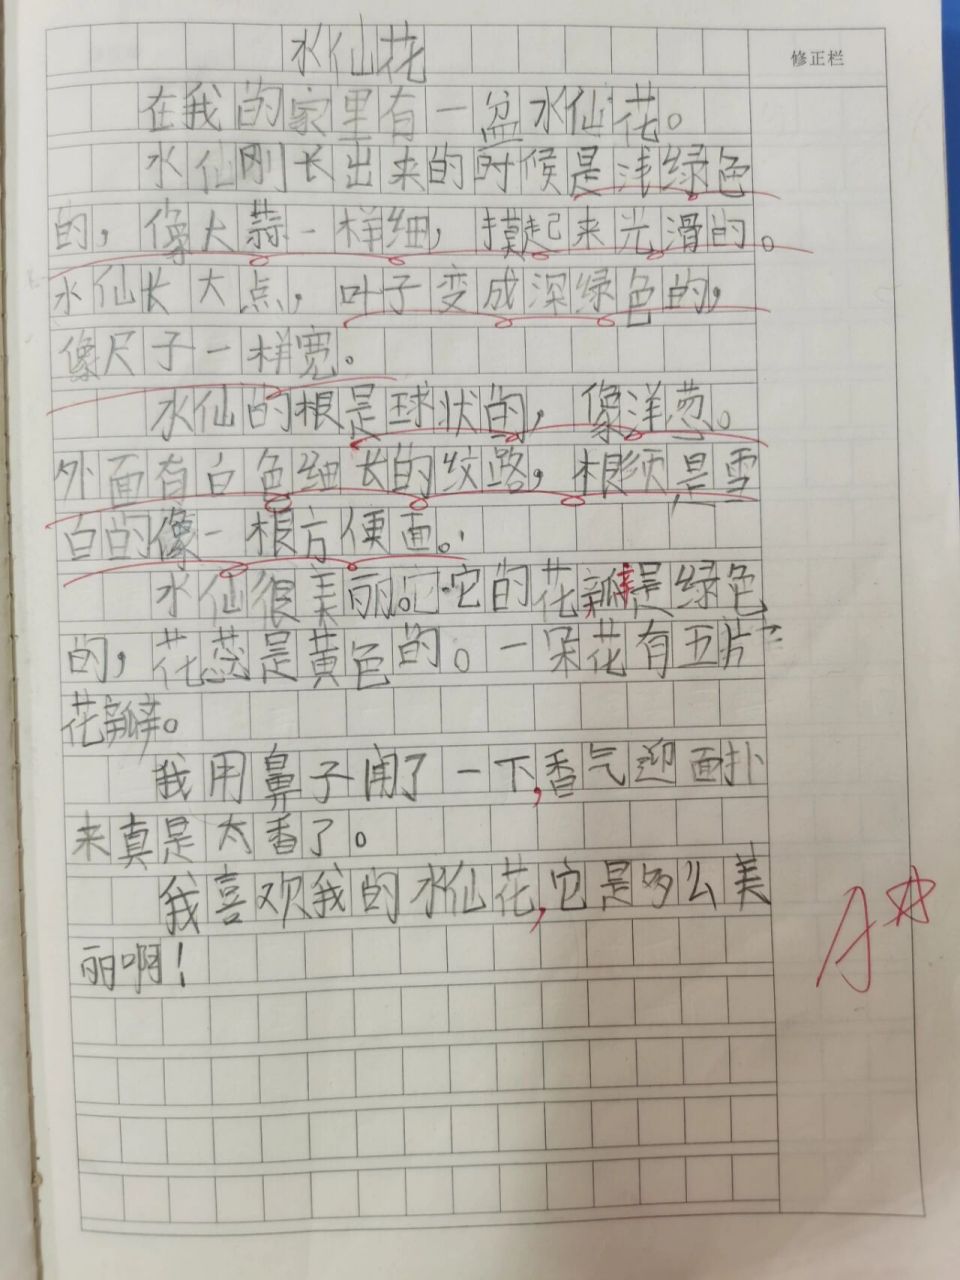 水仙花
修正栏
在我的家里有一盆水仙花。
水仙刚长出来的时候是浅绿色
的，像大蒜一样细，摸起来光滑的。
水仙长大点，叶子变成深绿色的，
像尺子一样宽。
水仙的根是球状的，像洋葱。
外面有白色细长的纹路，根须是雪
白的像一根方便面。
水仙很美丽。它的花瓣是绿色
的，花蕊是黄色的。一朵花有五片
花瓣。
我用鼻子闻了一下，香气迎面扑
来真是太香了。
我喜欢我的水仙花，它是多么美
丽啊！
A☆